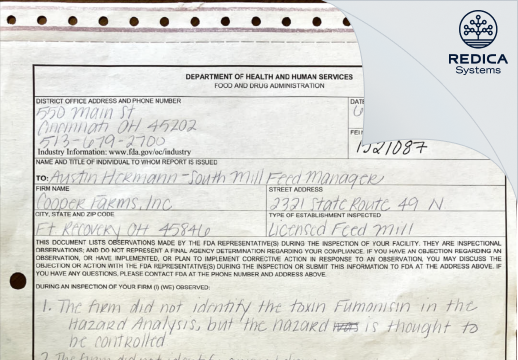 REDICA
Systems
DEPARTMENT OF HEALTH AND HUMAN SERVICES
FOOD AND DRUG ADMINISTRATION
DISTRICT OFFICE ADDRESS AND PHONE NUMBER
550 Main St
Cincinnati OH 45202
513-679-2700
Industry Information: www.fda.gov/oc/industry
1521087
NAME AND TITLE OF INDIVIDUAL TO WHOM REPORT IS ISSUED
TO: Austin Hormann - South Mill Feed Manager
FIRM NAME STREET ADDRESS
Cooper Farms, Inc 2321 State Route 49 N
CITY, STATE AND ZIP CODE TYPE OF ESTABLISHMENT INSPECTED
Ft Recovery OH 45846 Licensed Feed Mill
THIS DOCUMENT LISTS OBSERVATIONS MADE BY THE FDA REPRESENTATIVE(S) DURING THE INSPECTION OF YOUR FACILITY. THEY ARE INSPECTIONAL
OBSERVATIONS; AND DO NOT REPRESENT A FINAL AGENCY DETERMINATION REGARDING YOUR COMPLIANCE. IF YOU HAVE AN OBJECTION REGARDING AN
OBSERVATION, OR HAVE IMPLEMENTED, OR PLAN TO IMPLEMENT CORRECTIVE ACTION IN RESPONSE TO AN OBSERVATION, YOU MAY DISCUSS THE
OBJECTION OR ACTION WITH THE FDA REPRESENTATIVE(S) DURING THE INSPECTION OR SUBMIT THIS INFORMATION TO FDA AT THE ADDRESS ABOVE. IF
YOU HAVE ANY QUESTIONS, PLEASE CONTACT FDA AT THE PHONE NUMBER AND ADDRESS ABOVE.
DURING AN INSPECTION OF YOUR FIRM (I) (WE) OBSERVED:
1. The firm did not identify the toxin Fumonisin in the
Hazard Analysis, but the hazard is thought to
be controlled
2. The firm did not identify